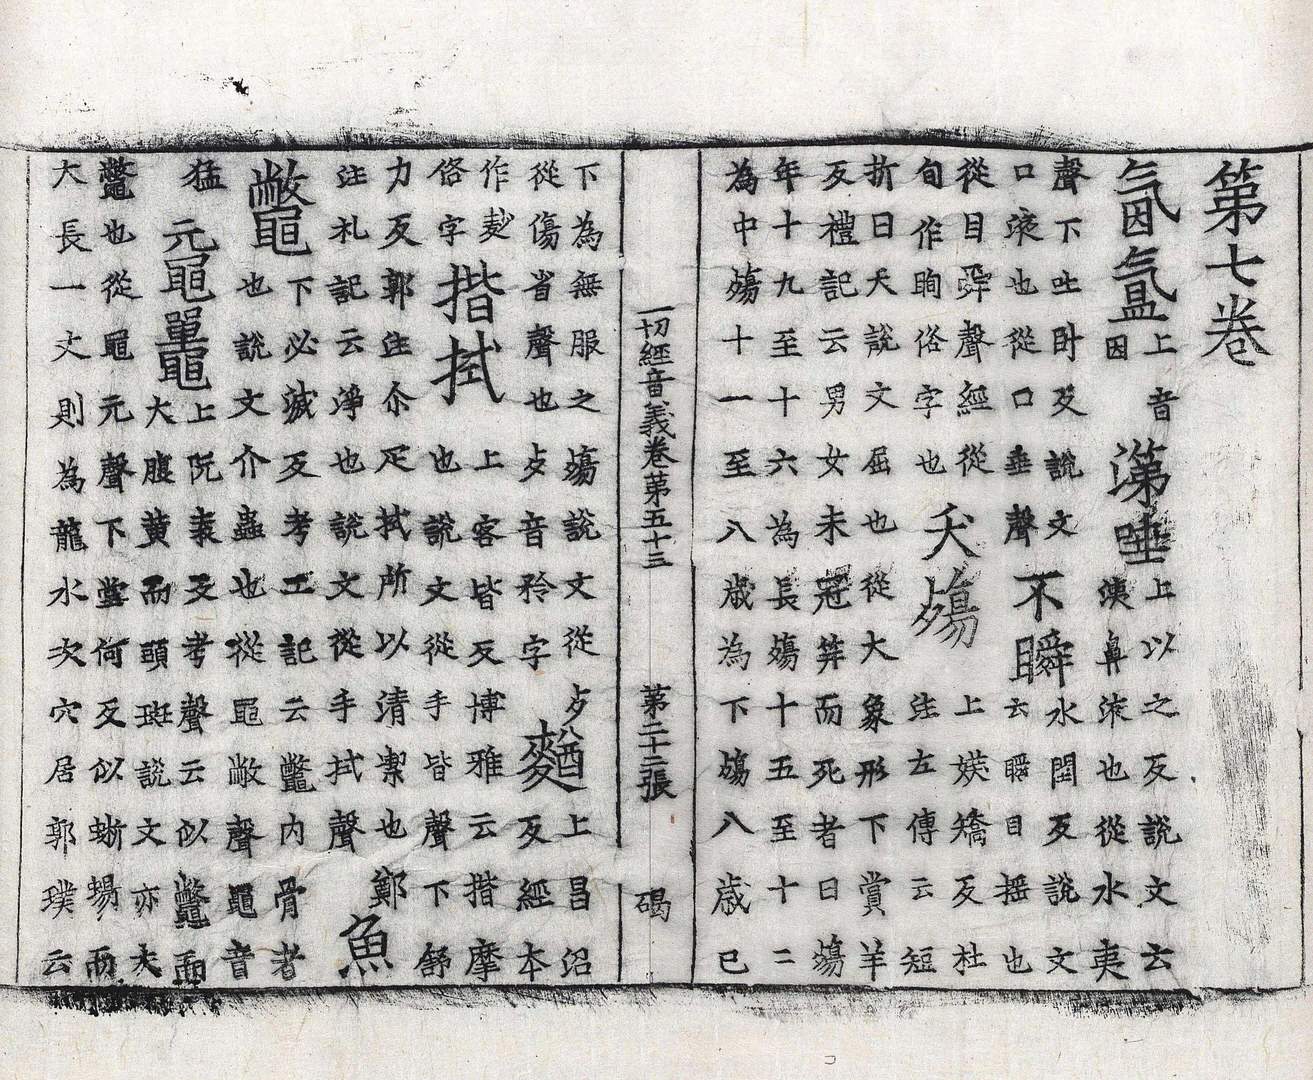 第七卷
氤氳
上音
因
洟唾
上以之反說文云
洟鼻液也從水夷
聲下吐卧反說文
口液也從口垂聲
不瞬
水閏反說文
云瞬目搖也
從目舜聲經從
旬作眴俗字也
夭殤
上矯反杜
注左傳云短
折曰夭說文屈也從大象形下賞羊
反禮記云男女未冠笄而死者曰殤
年十九至十六為長殤十五至十二
為中殤十一至八歲為下殤八歲已
一切經音義卷第五十三 第二十二張 碣
下為無服之殤說文從歹
從傷省聲也歹音矜字
上昌沼
反經本
作麨
俗字
揩拭
上客皆反博雅云揩摩
也說文從手皆聲下舒
力反郭注尒疋拭所以清潔也鄭
注札記云淨也說文從手拭聲
魚
鼈
下必滅反考工記云鼈內骨者
也說文介蟲也從黽敝聲黽音
猛
黿鼉
上阮袁反考聲云似鼈而
大腹黃而頭斑說文亦大
鼈也從黽元聲下堂何反似蜥蜴而
大長一丈則為龍水次穴居郭璞云